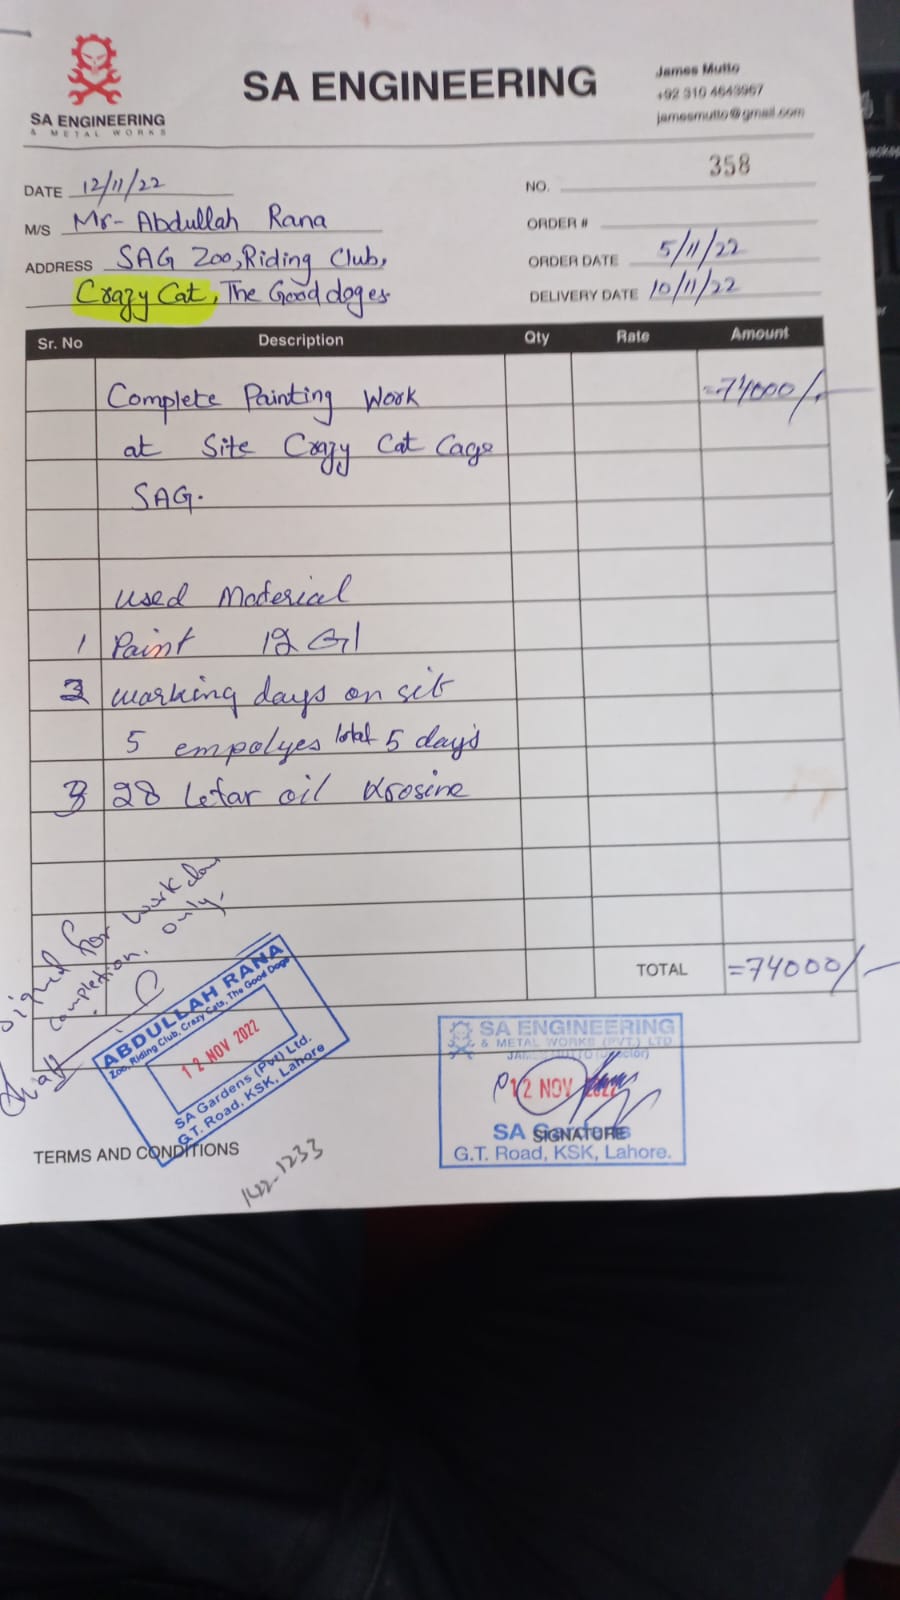 SA ENGINEERING
& METAL WORKS
SA ENGINEERING
James Mutto
+92 310 4643967
jamesmutto@gmail.com
DATE 12/11/22
NO. 358
M/S Mr- Abdullah Rana
ORDER #
ADDRESS SAG Zoo, Riding Club,
ORDER DATE 5/11/22
Crazy Cat, The Good doges
DELIVERY DATE 10/11/22
Sr. No Description Qty Rate Amount
Complete Painting Work =74000/-
at Site Crazy Cat Cage
SAG.
used Material
1 Paint 12 Gl
2 working days on sit
5 empolyes total 5 day's
3 28 Letar oil Krosine
TOTAL =74000/-
signed for work
completion. only.
ABDULLAH RANA
Zoo, Riding Club, Crazy Cats, The Good Dogs
12 NOV 2022
SA Gardens (Pvt) Ltd.
G.T. Road, KSK, Lahore
SA ENGINEERING
& METAL WORKS (PVT.) LTD
JAMES MUTTO (Director)
12 NOV 2022
SA Gardens
SIGNATURE
G.T. Road, KSK, Lahore.
TERMS AND CONDITIONS
142-1233